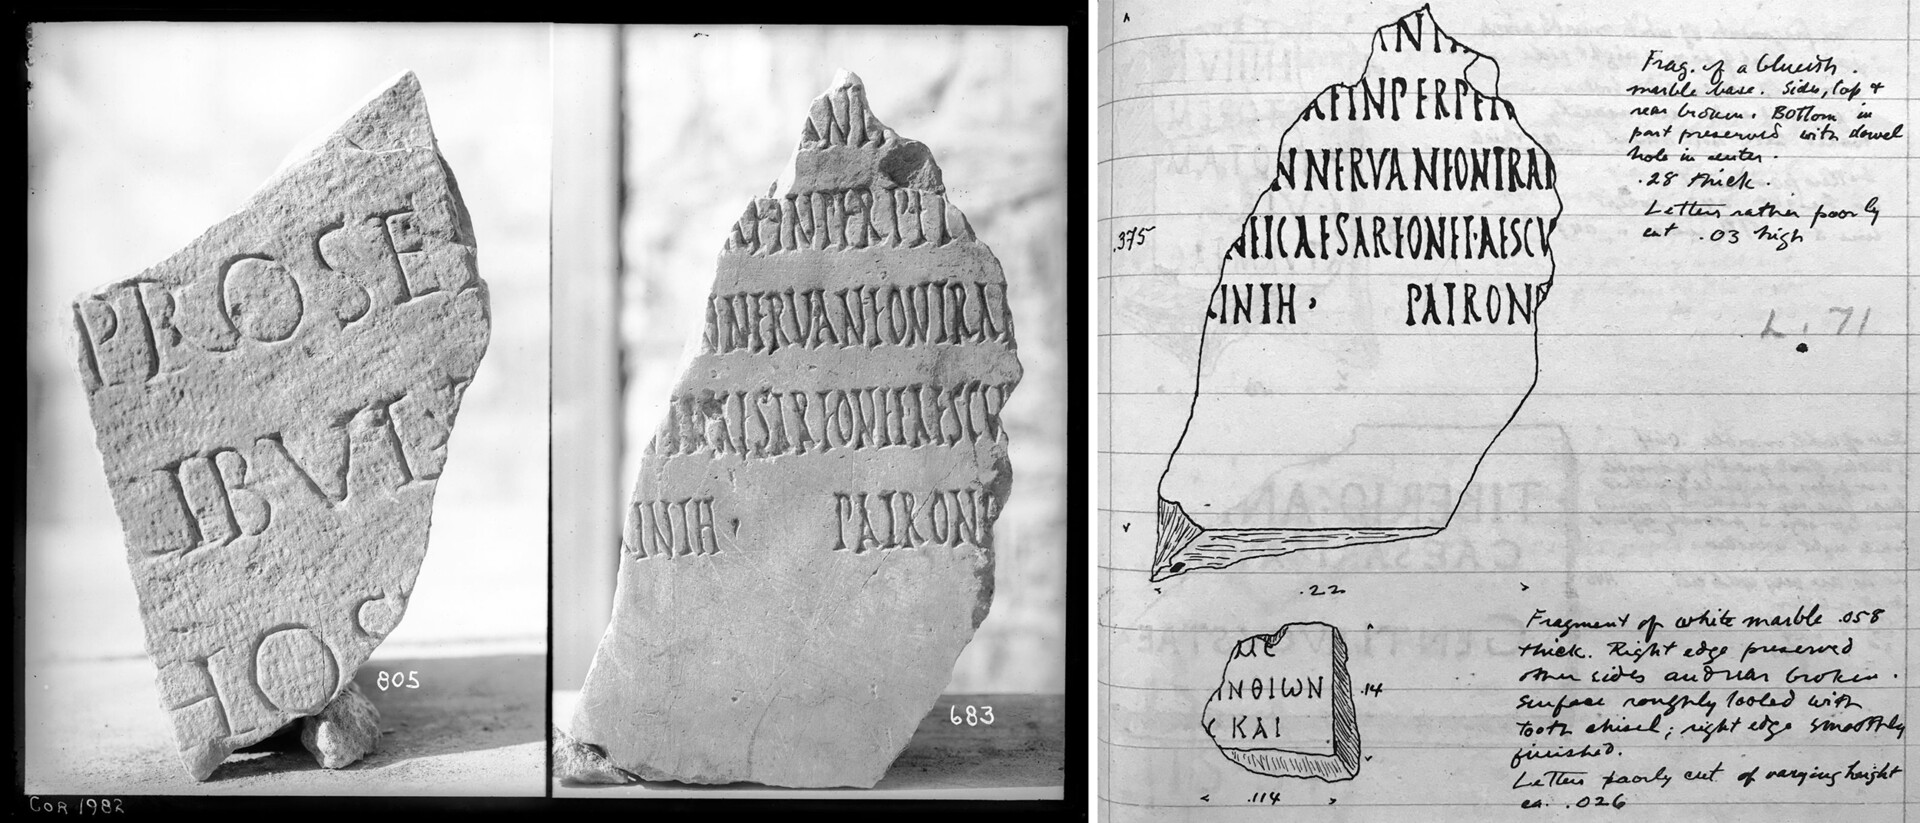 PROSE
IBVE
IO
805
ANI
NERVANEONTRA
CAESAREONETAESCV
INIH · PATRON
683
COR 1982
NI
EINPERPET
NNERVANEONTRAI
EICAESAREONET·AESCV
INIH · PATRON
.375
.22
Frag. of a blueish
marble base. Sides, top +
rear broken. Bottom in
part preserved with dowel
hole in center.
.28 thick.
Letters rather poorly
cut .03 high
L. 71
ΝΘΙωΝ
ΚΑΙ
.14
.114
Fragment of white marble .058
thick. Right edge preserved
other sides and rear broken.
Surface roughly tooled with
tooth chisel; right edge smoothly
finished.
Letters poorly cut of varying height
ca. .026